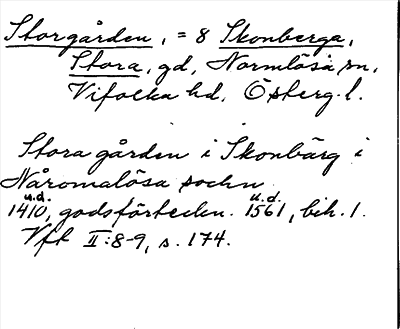 Storgården, = 8 Skonberga,
Stora, gd, Normlösa sn,
Vifolka hd, Österg. l.
Stora gården i Skonbärg i
Nåromalösa sochn
u.d. u.d.
1410, godsförteckn. 1561, bih. 1.
Vft II:8-9, s. 174.